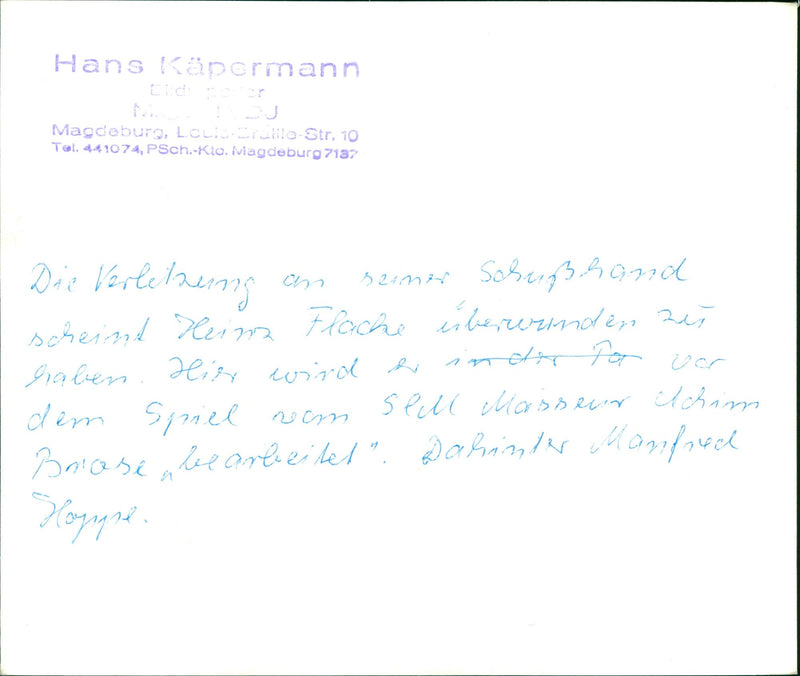 Hans Käpermann
Bildreporter
Magdeburg, Louis-Braille-Str. 10
Tel. 441074, PSch.-Kto. Magdeburg 7137
Die Verletzung an seiner Schußhand
scheint Heinz Flacke überwunden zu
haben. Hier wird er in der Pa vor
dem Spiel vom SCM Masseur Achim
Brase „bearbeitet". Dahinter Manfred
Hoppe.